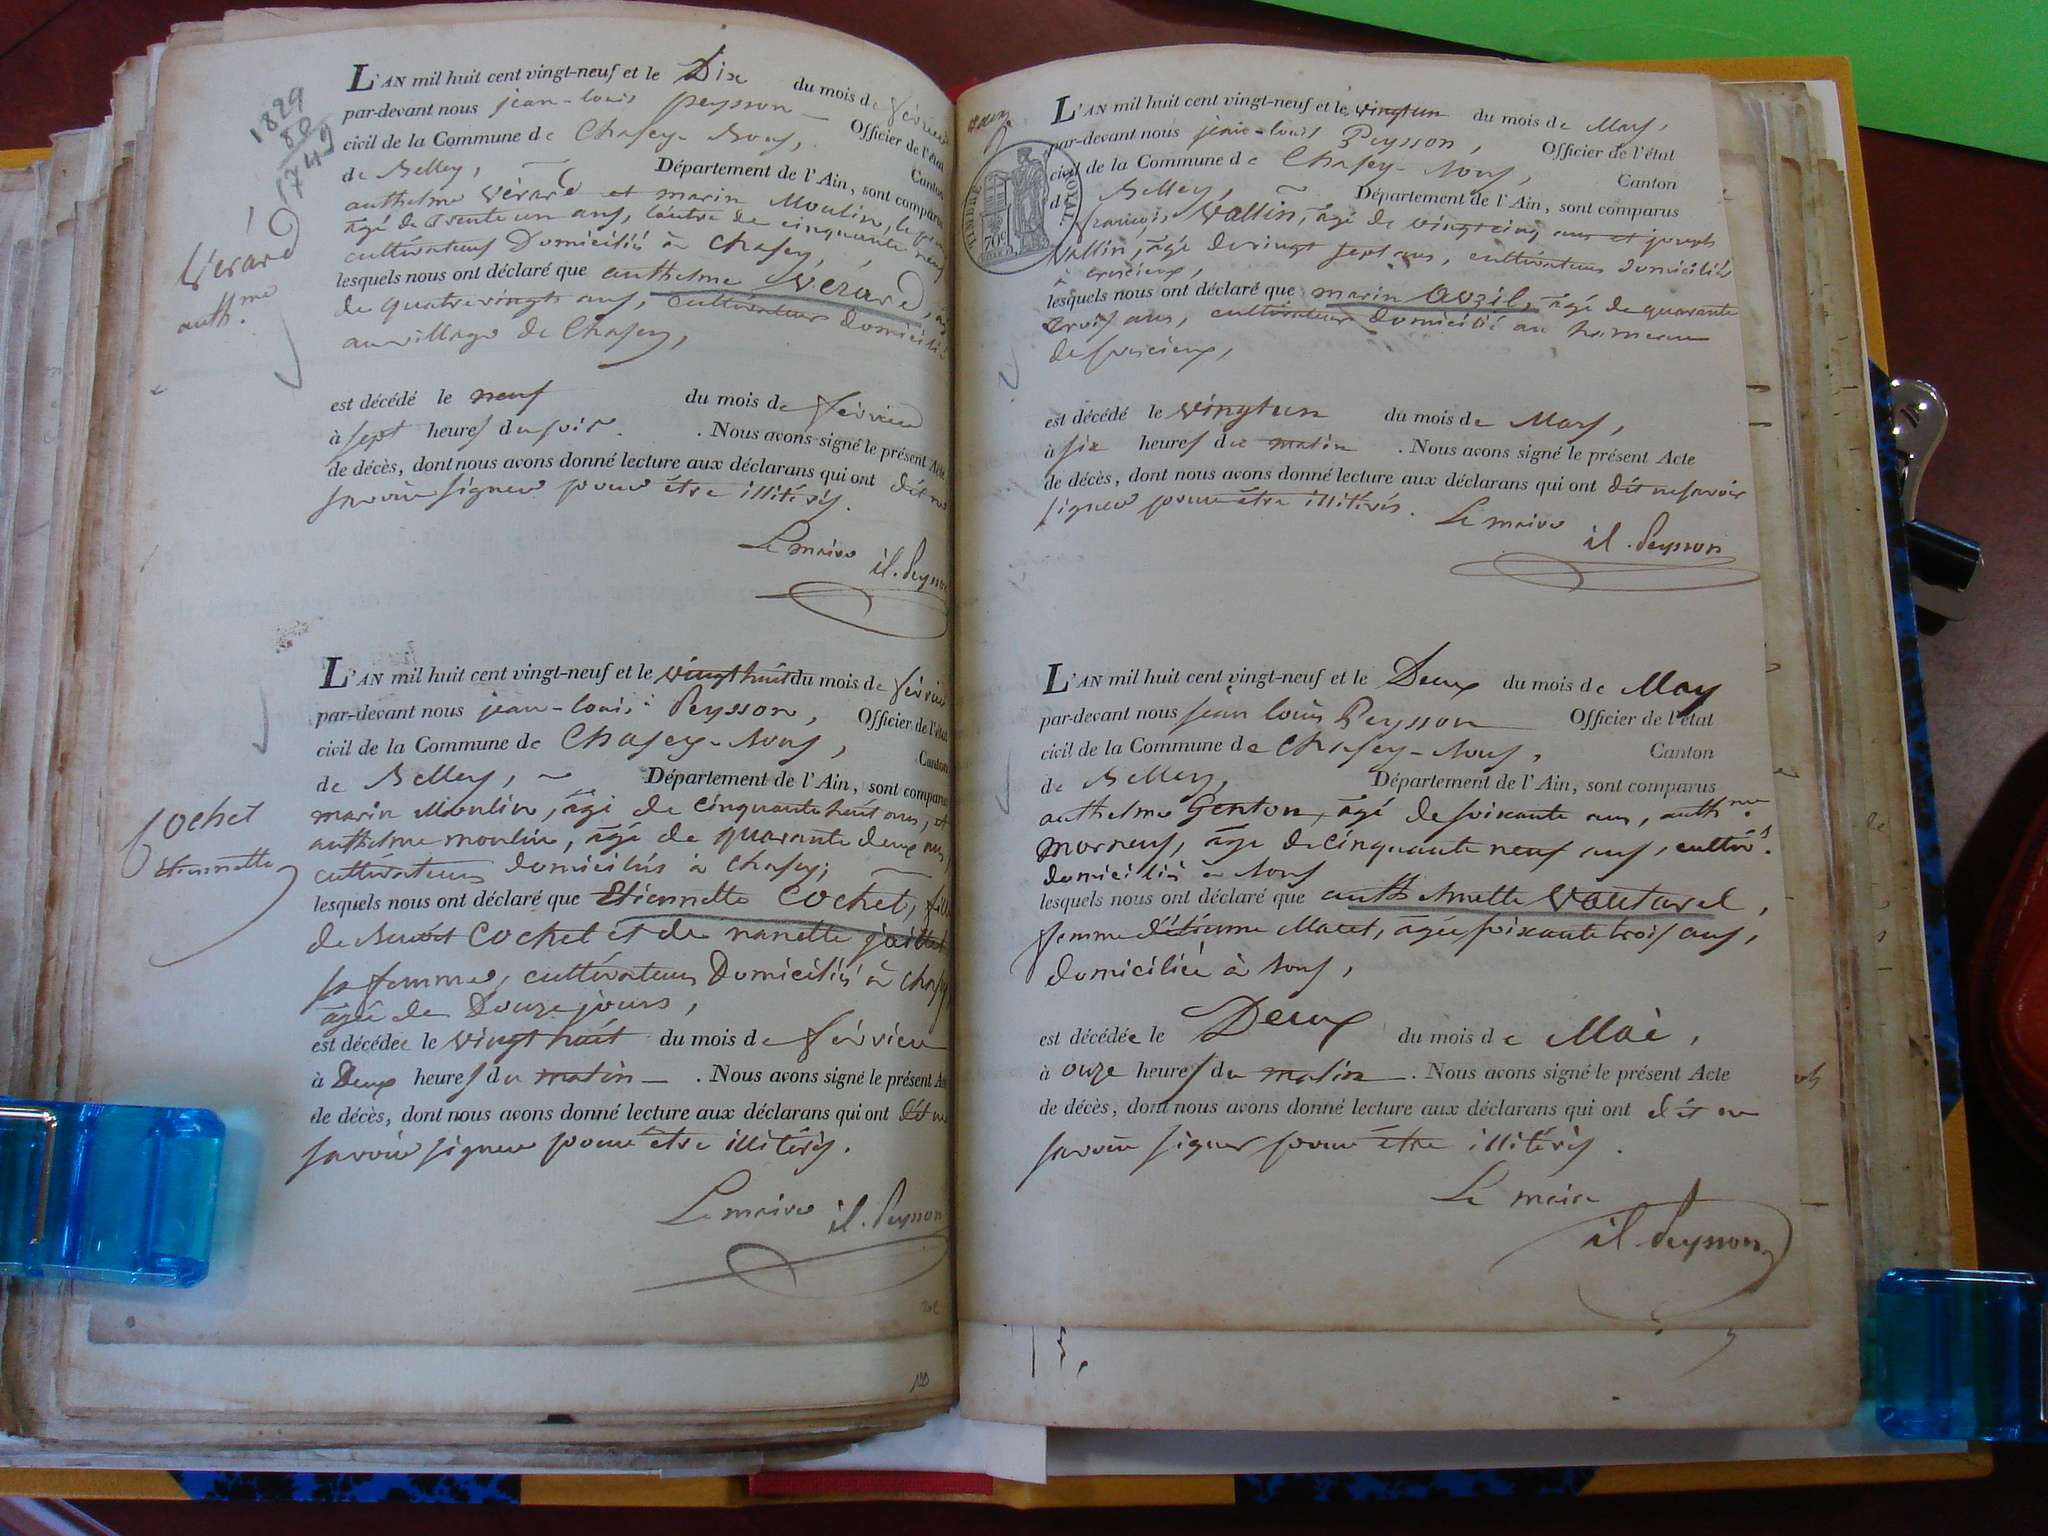 1829
80
1749
L'AN mil huit cent vingt-neuf et le Dix du mois de février
par-devant nous jean-louis peysson Officier de l'état
civil de la Commune de Chasey-Bons, Canton
de Belley, Département de l'Ain, sont comparus
anthelme Vérard et marin Moulin, le
âgé de trente un ans, l'autre de cinquante neuf
cultivateurs Domiciliés à Chasey,
lesquels nous ont déclaré que anthelme Vérard,
de quatrevingts ans, cultivateur domicilié
au village de Chasey,
Vérard
anth.me
est décédé le neuf du mois de février
à sept heures du soir. Nous avons signé le présent Acte
de décès, dont nous avons donné lecture aux déclarans qui ont dit ne
savoir signer pour être illitérés.
Le maire
jl. Peysson
L'AN mil huit cent vingt-neuf et le vingt huit du mois de février
par-devant nous jean-louis Peysson, Officier de l'état
civil de la Commune de Chasey-Bons, Canton
de Belley, Département de l'Ain, sont comparus
marin Moulin, âgé de cinquante huit ans, et
anthelme moulin, âgé de quarante deux ans,
cultivateurs domiciliés à Chasey;
lesquels nous ont déclaré que Etiennette Cochet, fille
de Benoit Cochet et de nanette juillet
sa femme, cultivateurs Domiciliés à Chasey
âgée de Douze jours,
Cochet
Etiennette
est décédée le vingt huit du mois de février
à Deux heures du matin. Nous avons signé le présent Acte
de décès, dont nous avons donné lecture aux déclarans qui ont dit ne
savoir signer pour être illitérés.
Le maire jl. Peysson
120
TIMBRE ROYAL
70c
L'AN mil huit cent vingt-neuf et le vingtun du mois de Mars,
par-devant nous jean-louis Peysson, Officier de l'état
civil de la Commune de Chasey-Bons, Canton
d Belley, Département de l'Ain, sont comparus
françois Vallin, âgé de vingt cinq ans et joseph
Vallin, âgé de vingt sept ans, cultivateurs domiciliés
lesquels nous ont déclaré que marin Avzil, âgé de quarante
trois ans, cultivateur domicilié au hameau
de
est décédé le vingtun du mois de Mars,
à six heures du matin. Nous avons signé le présent Acte
de décès, dont nous avons donné lecture aux déclarans qui ont dit ne savoir
signer pour être illitérés.
Le maire
jl. Peysson
L'AN mil huit cent vingt-neuf et le Deux du mois de May
par-devant nous jean louis Peysson Officier de l'état
civil de la Commune de Chasey-Bons, Canton
de Belley, Département de l'Ain, sont comparus
anthelme Genton, âgé de soixante ans, anth.me
Morneuf, âgé de cinquante neuf ans, cultiv.s
domiciliés à Bons
lesquels nous ont déclaré que anthelmette Vautarel,
femme d'étienne Macet, âgée soixante trois ans,
domiciliée à Bons,
est décédée le Deux du mois de Mai,
à onze heures du matin. Nous avons signé le présent Acte
de décès, dont nous avons donné lecture aux déclarans qui ont dit ne
savoir signer pour être illitérés.
Le maire
jl. Peysson